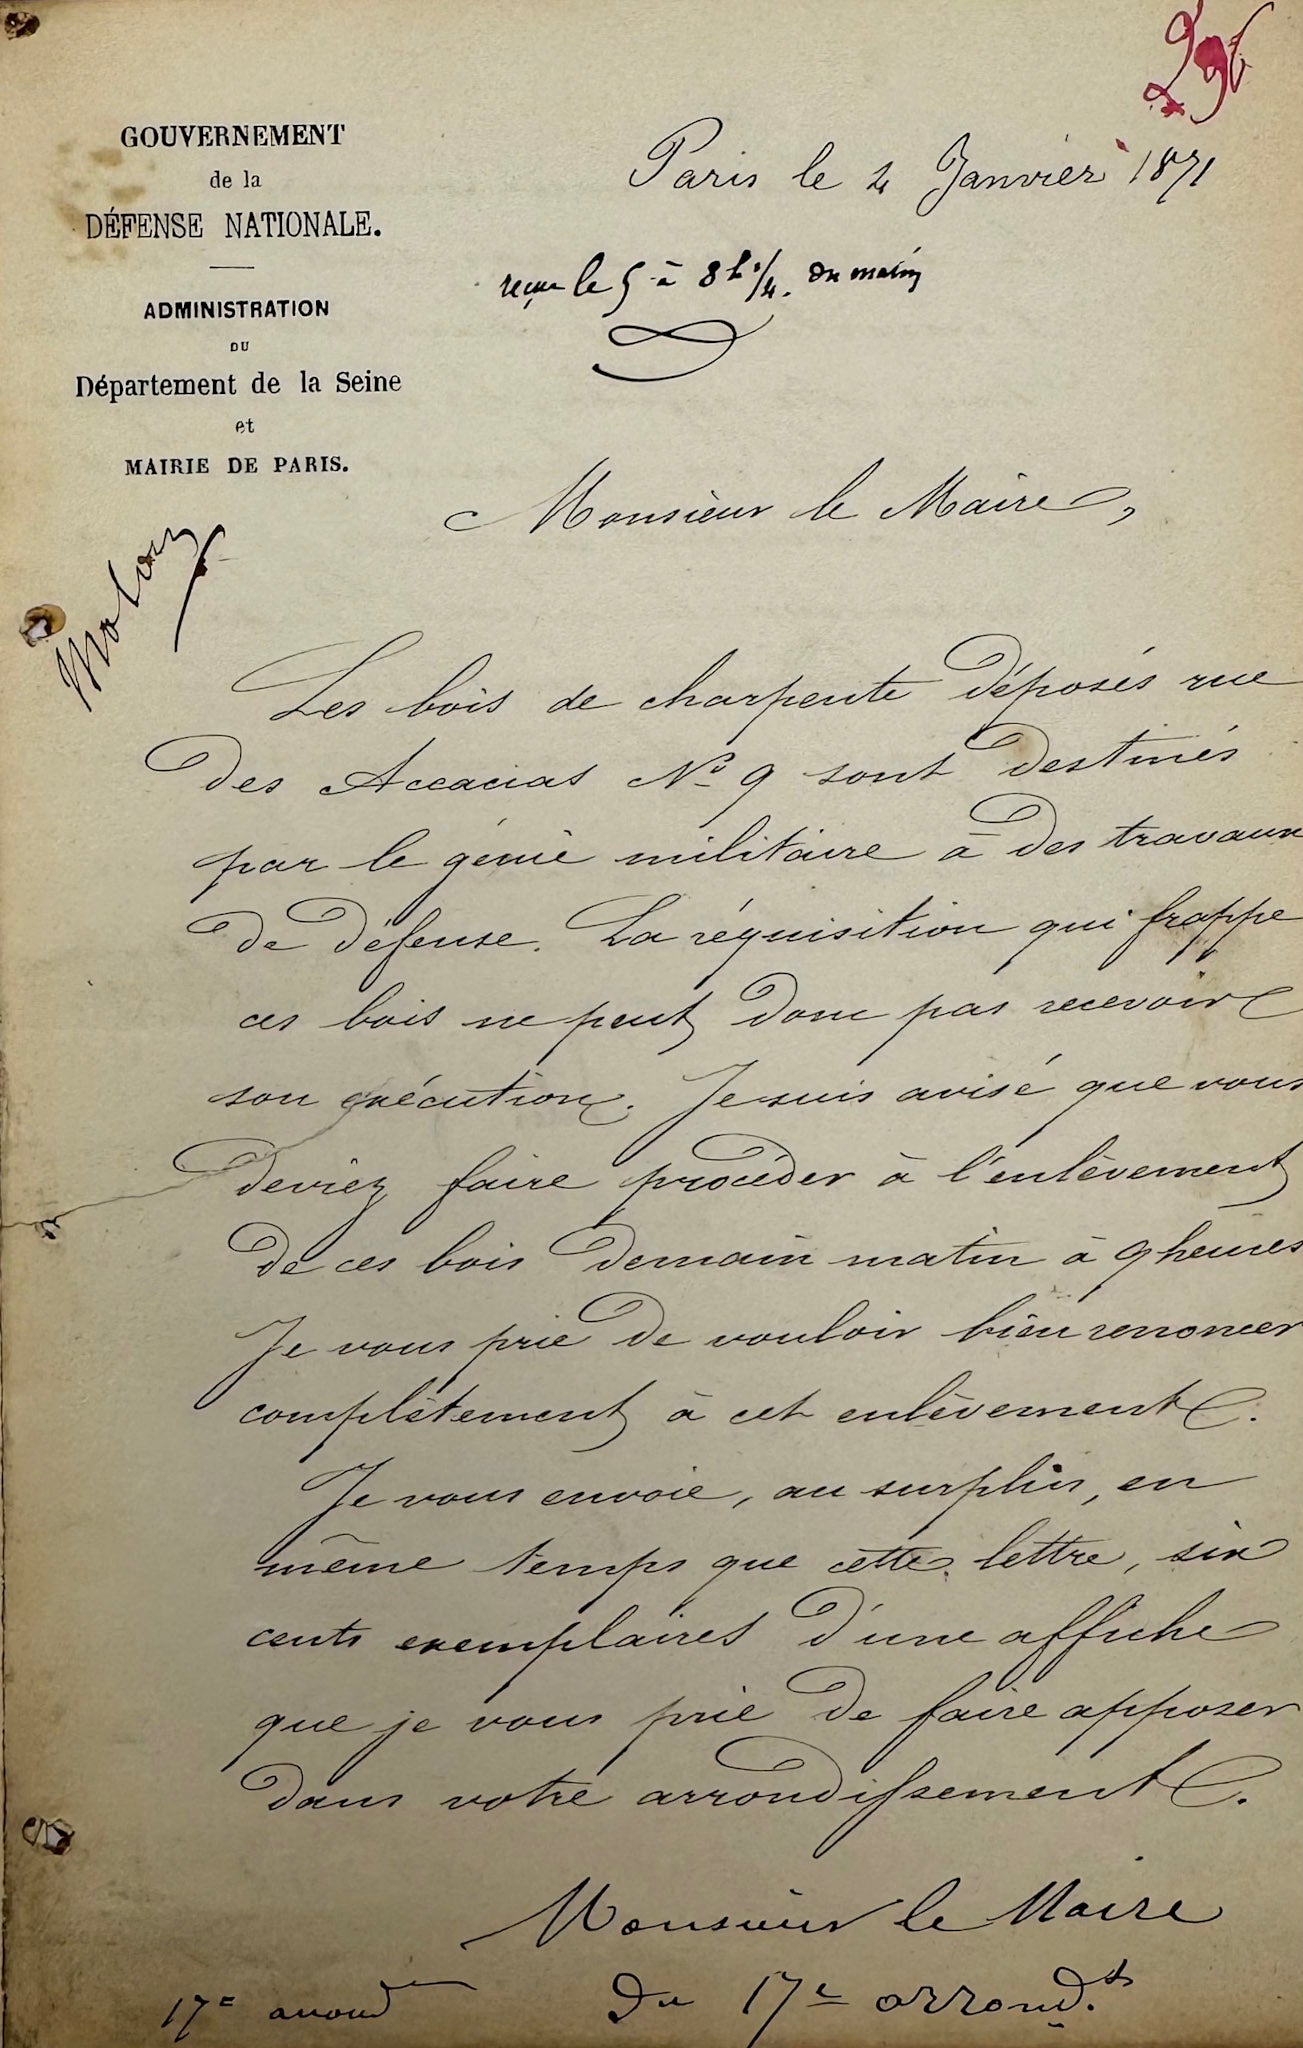 296
GOUVERNEMENT
de la
DÉFENSE NATIONALE.
ADMINISTRATION
DU
Département de la Seine
et
MAIRIE DE PARIS.
Paris le 4 Janvier 1871
reçue le 5 à 8 h 1/4. du matin
Monsieur le Maire,
Malon
Les bois de charpente déposés rue
des Accacias No 9 sont destinés
par le génie militaire à des travaux
de défense. La réquisition qui frappe
ces bois ne peut donc pas recevoir
son exécution. Je suis avisé que vous
devriez faire procéder à l'enlèvement
de ces bois demain matin à 9 heures
Je vous prie de vouloir bien renoncer
complètement à cet enlèvement.
Je vous envoie, au surplus, en
même temps que cette lettre, six
cents exemplaires d'une affiche
que je vous prie de faire apposer
dans votre arrondissement.
Monsieur le Maire
du 17e arrond.t
17e arrond